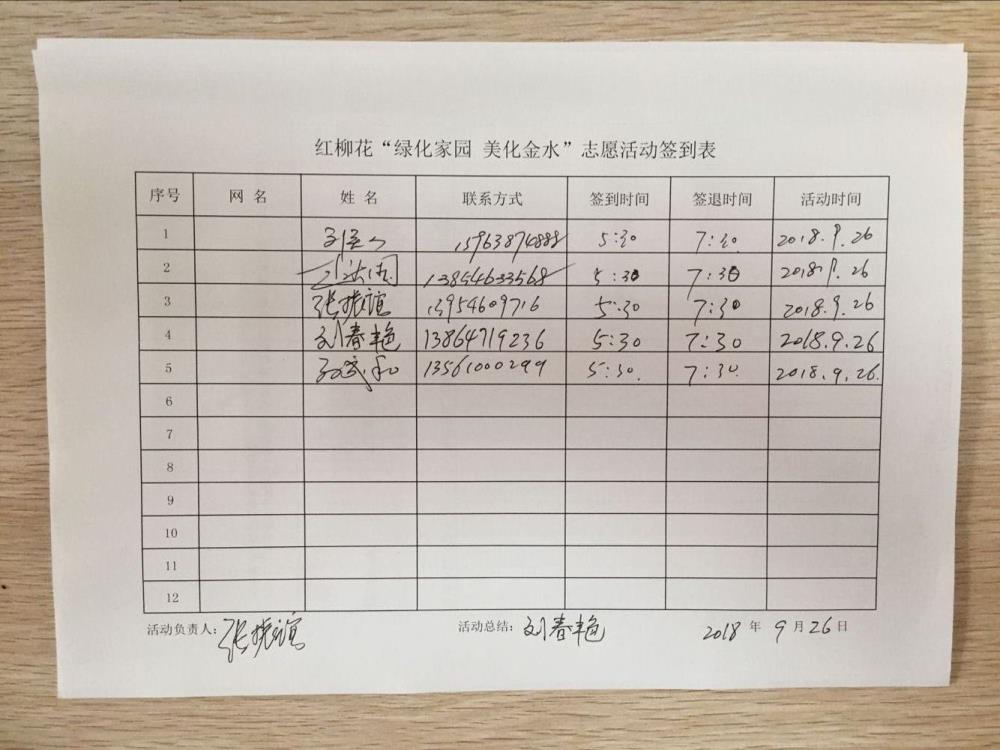 红柳花“绿化家园 美化金水”志愿活动签到表
序号 网 名 姓 名 联系方式 签到时间 签退时间 活动时间
1 15963874888 5:30 7:30 2018.9.26
2 13854633568 5:30 7:30 2018.9.26
3 张振谊 13954609716 5:30 7:30 2018.9.26
4 刘春艳 13864719236 5:30 7:30 2018.9.26
5 13561000299 5:30. 7:30. 2018.9.26.
6
7
8
9
10
11
12
活动负责人：张振谊 活动总结：刘春艳 2018 年 9 月 26 日